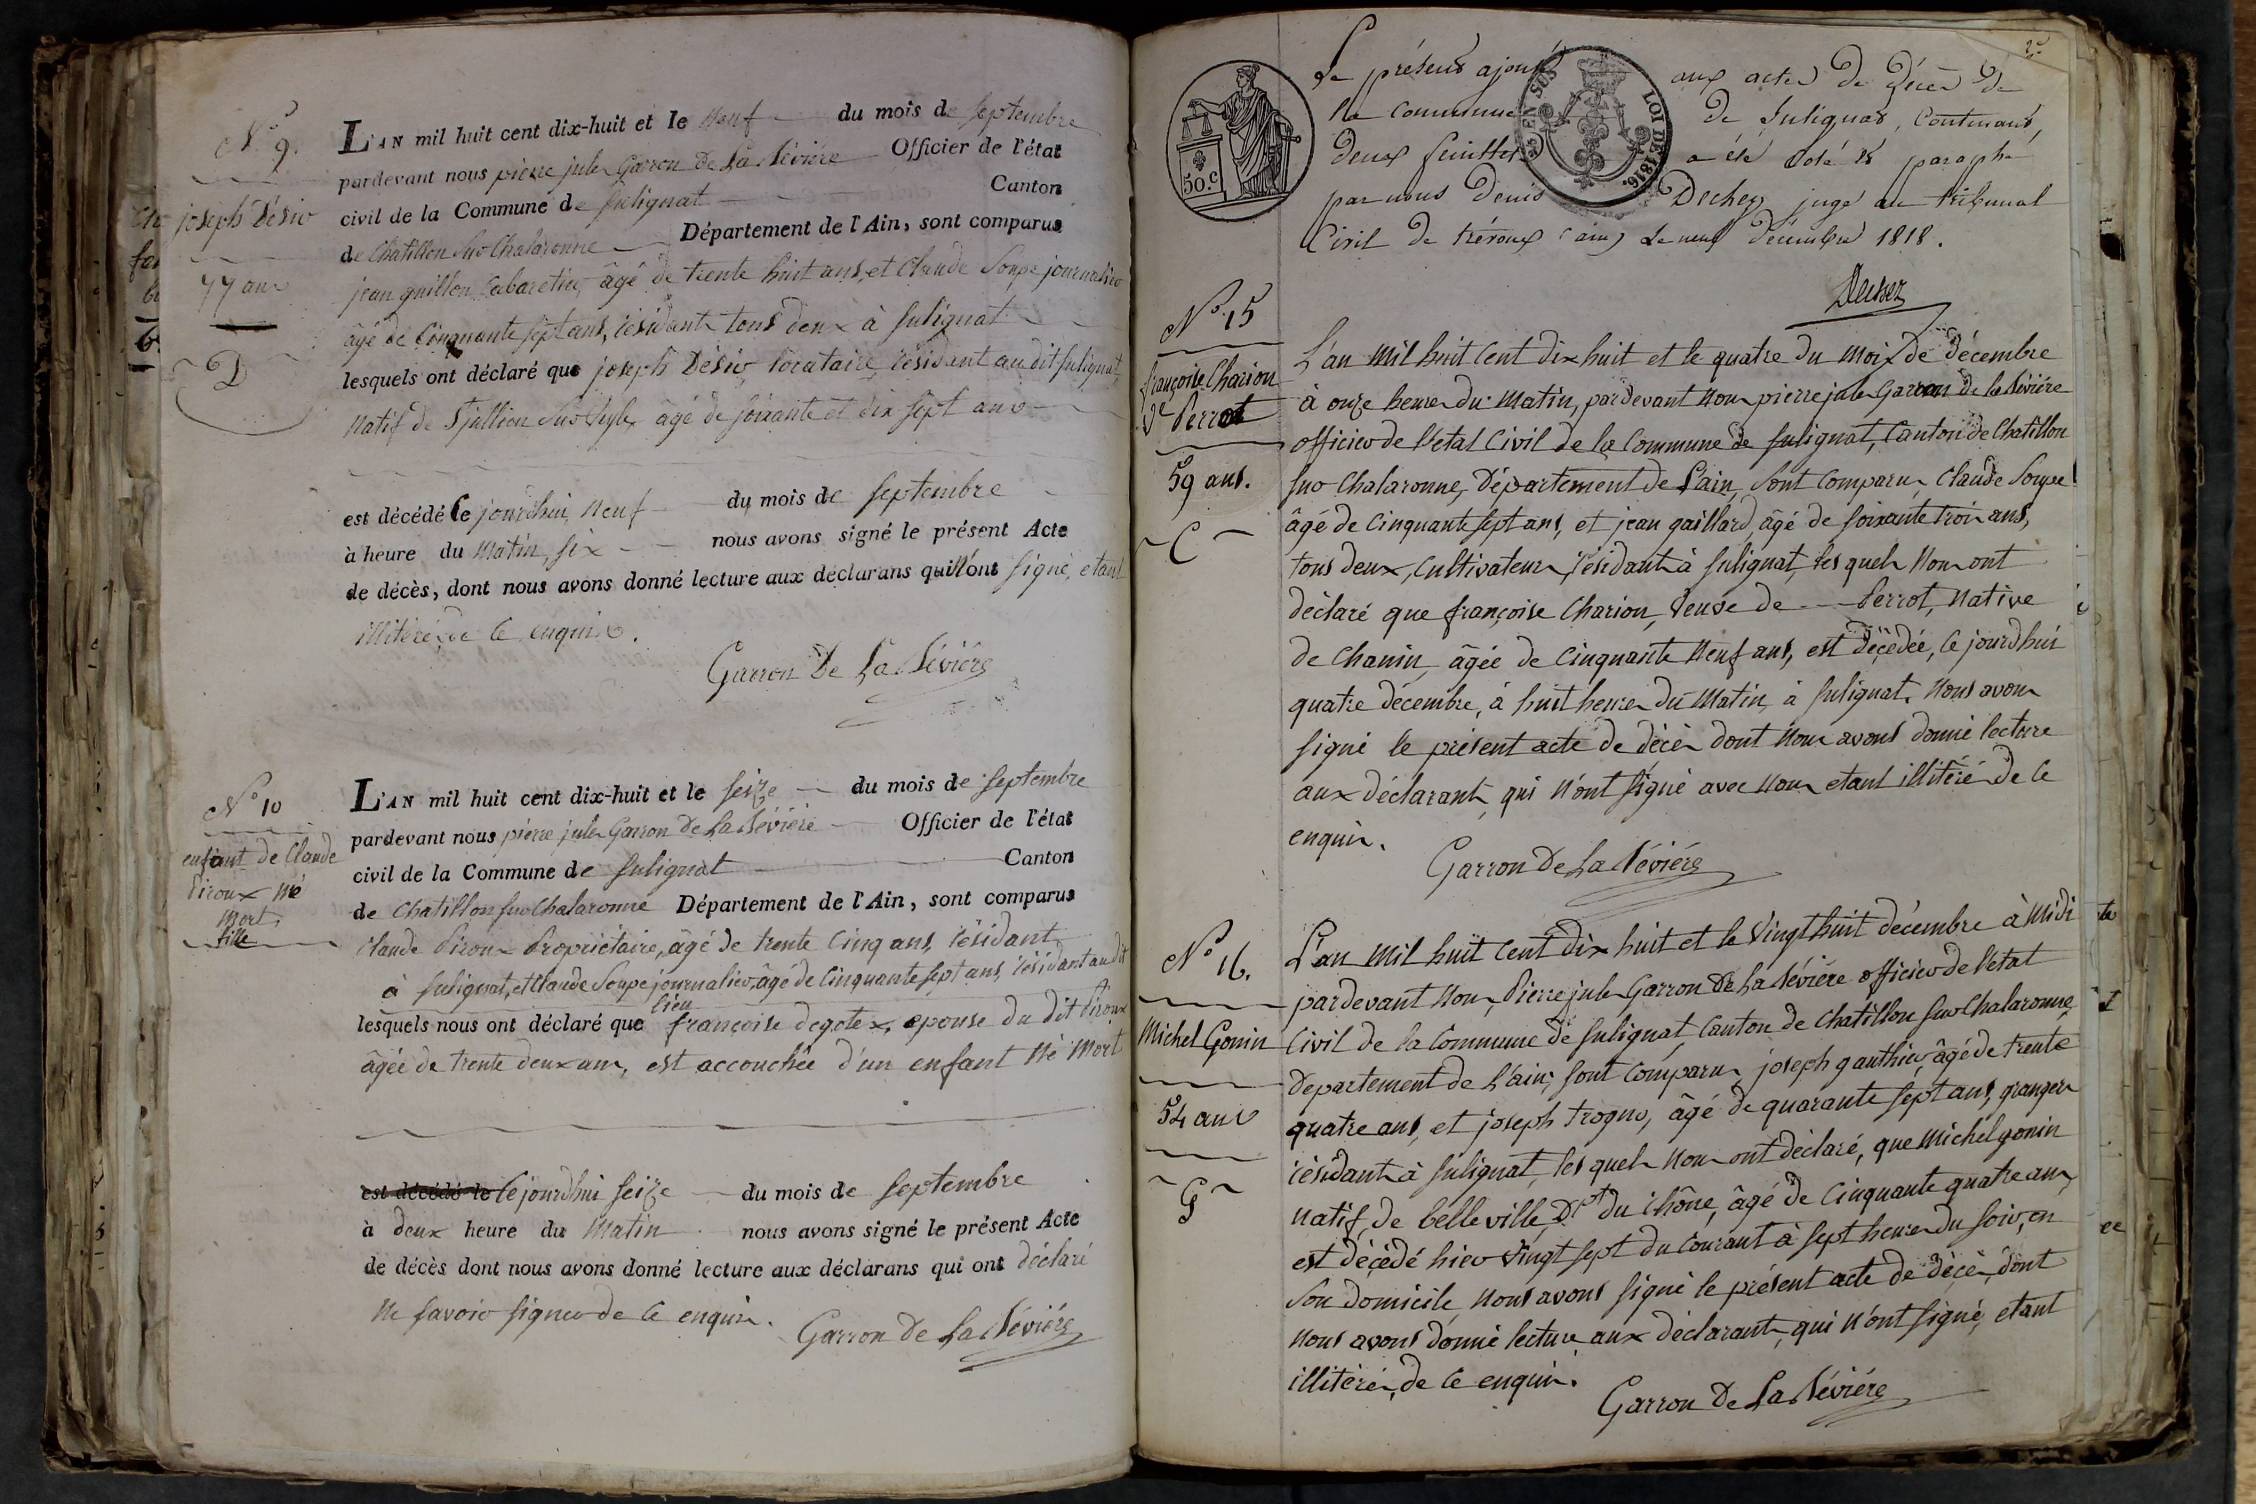 N.º 9.
joseph Désir
77 ans
D
L'AN mil huit cent dix-huit et le Neuf du mois de septembre
pardevant nous pierre jules Garron De La Sévière Officier de l'état
civil de la Commune de sulignat Canton
de Chatillon sur Chalaronne Département de l'Ain, sont comparus
jean guillon Cabaretier, âgé de trente huit ans, et Claude Soupe journalier
âgé de Cinquante sept ans, résidants tous deux à sulignat
lesquels ont déclaré que joseph Désir, locataire, résidant au dit sulignat,
Natif de St jullien sur Vesle, âgé de soixante et dix sept ans
est décédé Ce jourd'hui Neuf du mois de septembre
à heure du Matin, six nous avons signé le présent Acte
de décès, dont nous avons donné lecture aux déclarans qui n'ont signé, etant
illitérés de Ce enquis.
Garron De La Sévière
N.º 10
enfant de Claude
Piroux né
Mort.
fille
L'AN mil huit cent dix-huit et le seize du mois de septembre
pardevant nous pierre jules Garron De La Sévière Officier de l'état
civil de la Commune de sulignat Canton
de Chatillon sur Chalaronne Département de l'Ain, sont comparus
Claude Piroux Propriétaire, âgé de trente Cinq ans, résidant
à sulignat, et Claude Soupe journalier, âgé de Cinquante sept ans, résidant au dit
lieu
lesquels nous ont déclaré que françoise degotex, epouse du dit Piroux
âgée de trente deux ans, est accouchée d'un enfant Né Mort
est décédé le Ce jourd'hui seize du mois de septembre
à deux heure du Matin nous avons signé le présent Acte
de décès dont nous avons donné lecture aux déclarans qui ont déclaré
Ne savoir signer de Ce enquis.
Garron De La Sévière
2e
50.c
EN SUS
LOI DE 1816.
Le présent ajouté aux actes de Décès de
la Commune de Sulignat, Contenant,
deux feuillets a été Coté et paraphé
par nous Denis Dechez juge au tribunal
Civil de trévoux (ain) Le neuf Décembre 1818.
Dechez
N.º 15
françoise Charion
Ve Perrot
59 ans.
C
L'an Mil huit Cent dix huit et le quatre du Mois de décembre
à onze heures du Matin, pardevant Nous pierre jules Garron de la Sévière
officier de l'etat Civil de la Commune de sulignat, Canton de Chatillon
sur Chalaronne, Département de L'ain, sont Comparus Claude Soupe
âgé de Cinquante sept ans, et jean gaillard, âgé de soixante trois ans,
tous deux, Cultivateurs, résidants à sulignat, les quels Nous ont
déclaré que françoise Charion, Veuve de Perrot, Native
de Chanin, âgée de Cinquante Neuf ans, est décédée, Ce jourd'hui
quatre décembre, à huit heures du Matin, à sulignat. Nous avons
signé le présent acte de décès dont Nous avons donné lecture
aux déclarants, qui N'ont signé avec Nous etant illitéré De Ce
enquis.
Garron De La Sévière
N.º 16.
Michel Gonin
54 ans
G
L'an Mil huit Cent Dix huit et le Vingt huit décembre à Midi
pardevant Nous, Pierre jules Garron De La Sévière officier de l'etat
Civil de la Commune de sulignat, Canton de Chatillon sur Chalaronne,
Departement de L'ain; sont Comparus joseph gauthier, âgé de trente
quatre ans, et joseph trogno, âgé de quarante sept ans, grangers
résidants à sulignat, les quels Nous ont déclaré, que Michel gonin
natif, de belleville, Dt du rhône, âgé de Cinquante quatre ans,
est décédé hier Vingt sept du Courant à sept heures du soir, en
Son domicile, Nous avons signé le présent acte de décès, dont
Nous avons donné lecture aux déclarants, qui N'ont signé, etant
illitérés, de Ce enquis.
Garron De La Sévière